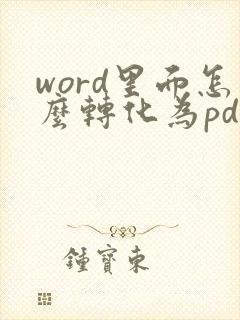 word里而怎
麼轉化為pd
鍾寶東